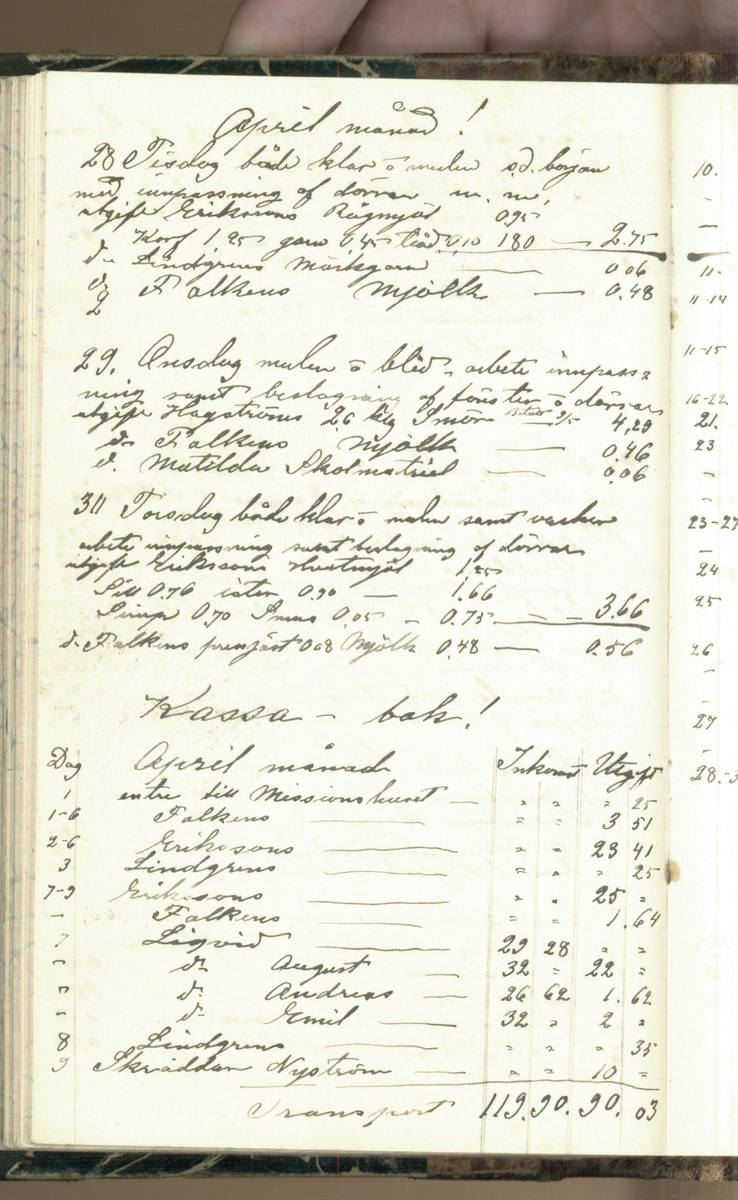 April månad!
28 Tisdag både klar o mulen s.d. början
med innpassning af dörrar m. m.
utgift Erikssons Rågmjöl 0,95
Korf 1,25 garn 0,45 tråd 0,10 1 80 — 2.75
d:o Lindgrens Märkgarn — 0.06
d:o Falkens Mjölk — 0.48
29. Onsdag mulen o blid. arbete innpass=
ning samt beslagning af fönster o dörrar
utgift Hagströms 2,6 kg Smör 4,29
d:o Falkens Mjölk — 0.46
d. Matilda Skolmatriel — 0.06
30 Torsdag både klar o mulen samt vacker
arbete innpassning samt beslagning af dörrar
utgift Erikssons Hvetmjöl 1.25
Sill 0.76 ister 0.90 — 1.66
Sirup 0.70 Snus 0.05 — 0.75 — 3.66
d:o Falkens pressjäst 0.08 Mjölk 0.48 — 0.56
Kassa - bok!
Dag April månad Inkomst Utgift
1 entre till Missionshuset — " " " 25
1-6 Falkens — " " 3 51
2-6 Erikssons — " " 23 41
3 Lindgrens — " " " 25
7-9 Erikssons — " " 25 "
– Falkens — " " 1.64
7 Liqvid — 29 28 " "
" d:o August — 32 " 22 "
" d:o Andreas — 26 62 1.62
" d:o Emil — 32 " 2 "
8 Lindgrens — " " " 35
9 Skräddar Nyström — " " 10 "
Transport 119.90. 90.03
10.
–
–
11.
11-14
11-15
16-22
21.
23
–
–
23-27
–
24
25
26
–
–
27
–
28.-3